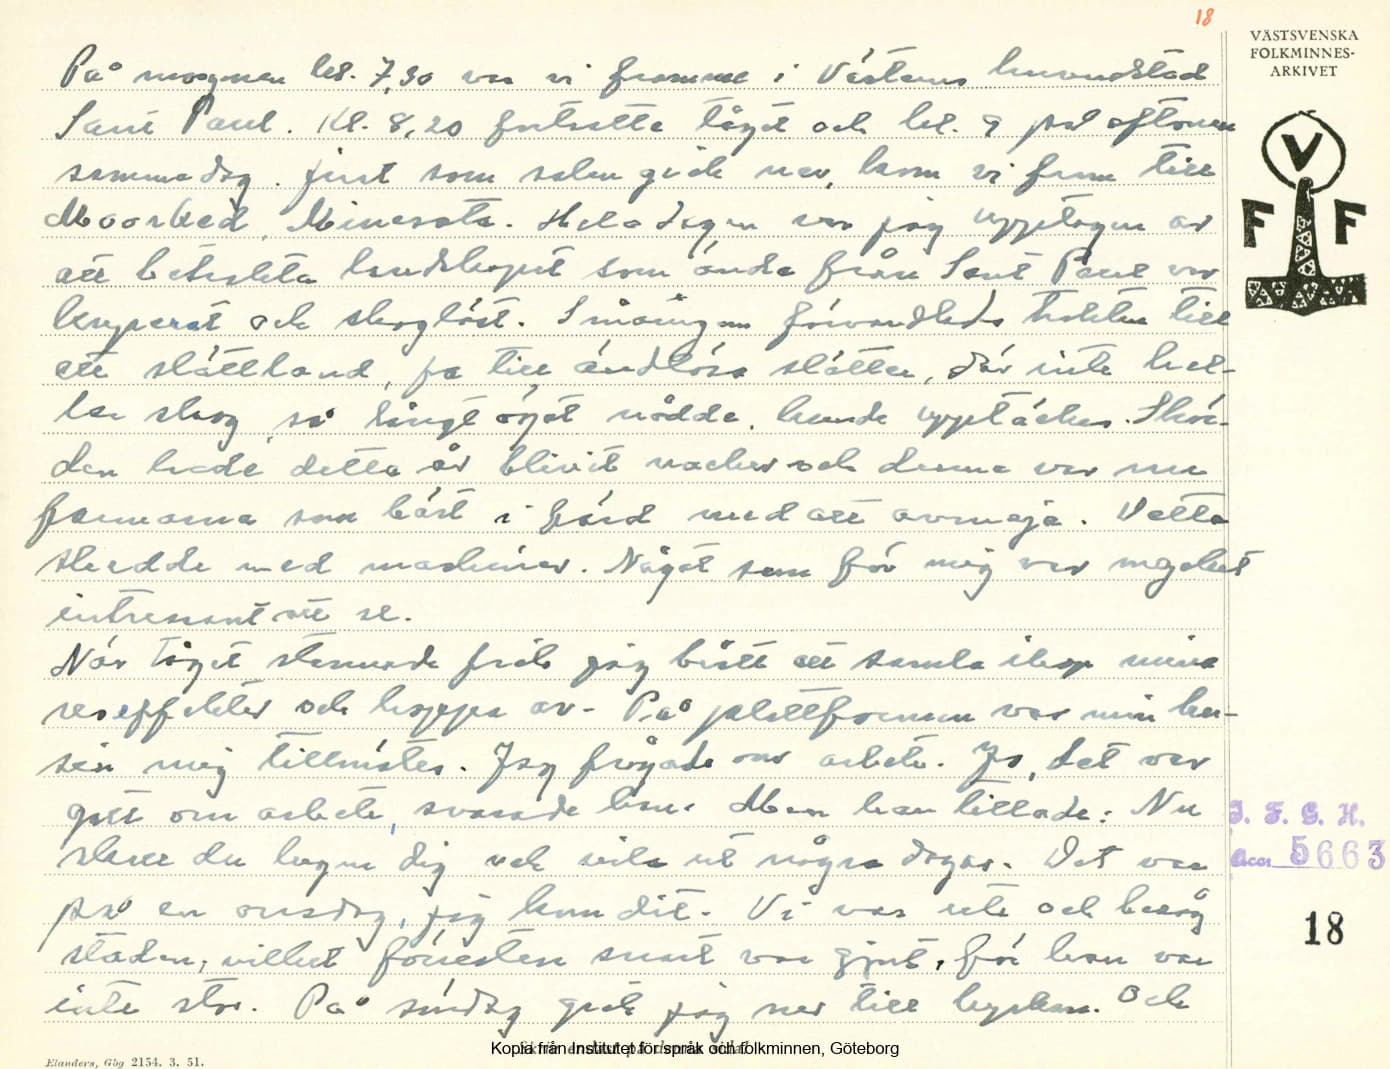 18
VÄSTSVENSKA
FOLKMINNES-
ARKIVET
På morgonen kl. 7,30 var vi framme i Västerns huvudstad
Sant Paul. Kl. 8,20 fortsatte tåget och kl. 9 på aftonen
samma dag. just som solen gick ner, kom vi fram till
Moorhed, Minesota. Hela dagen var jag upptagen av
att betrakta landskapet som ända från Sant Paul var
kuperat och skoglöst. Småningom förvandlads trakten till
ett slättland, ja till ändlösa slätter, där inte hel-
ler skog, så långt ögat nådde, kunde upptäckas. Skör-
den hade detta år blivit vacker och denna var nu
farmarna som bäst i färd med att avmeja. Detta
skedde med maskiner. Något som för mig var mycket
intressant att se.
När tåget stannade fick jag brått att samla ihop mina
reseffekter och hoppa av. På plattformen var min ku-
sin mig tillmötes. Jag frågade om arbete. Jo, det var
gott om arbete, svarade han. Men han tillade: Nu
skall du lugna dig och vila ut några dagar. Det var
på en onsdag, jag kom dit. Vi var ute och besåg
staden, vilket förresten snart var gjort, för han var
inte stor. På söndag gick jag ner till kyrkan. Och
V
F F
I. F. G. H.
Acc. 5663
18
Kopia från Institutet för språk och folkminnen, Göteborg
Elanders, Gbg 2154. 3. 51.